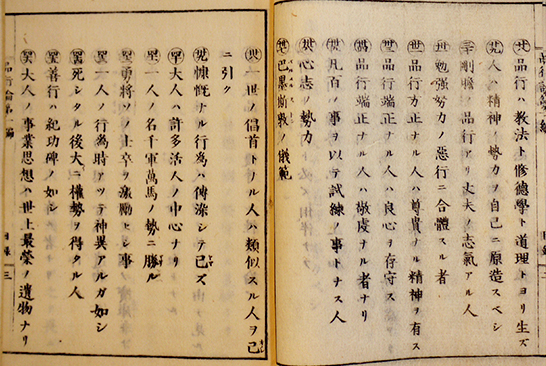 品行ハ教法ト修德學ト道理トヨリ生ズ
人ハ精神ノ勢力ヲ自己ニ原造スベシ
品行アリ丈夫ノ志氣アル人
勉強努力ノ惡行ニ合體スル者
品行方正ナル人ハ尊貴ナル精神ヲ有ス
品行端正ナル人ハ良心ヲ存守ス
品行端正ナル人ハ敬虔ナル者ナリ
凡百ノ事ヲ以テ試練ノ事トナス人
心志ノ勢力
ノ儀範
一世ノ倡首トナル人ハ類似スル人ヲ己
ニ引ク
慷慨ナル行為ハ傳染シテ已ズ
大人ハ許多活人ノ中心ナリ
一人ノ名千軍萬馬ノ勢ニ勝ル
勇將ソノ士卒ヲ激勵セシ事
一人ノ行為時アツテ神異アルガ如シ
死シタル後大ニ權勢ヲ得タル人
善行ハ紀功碑ノ如シ
大人ノ事業思想ハ世上最榮ノ遺物ナリ
目錄 三